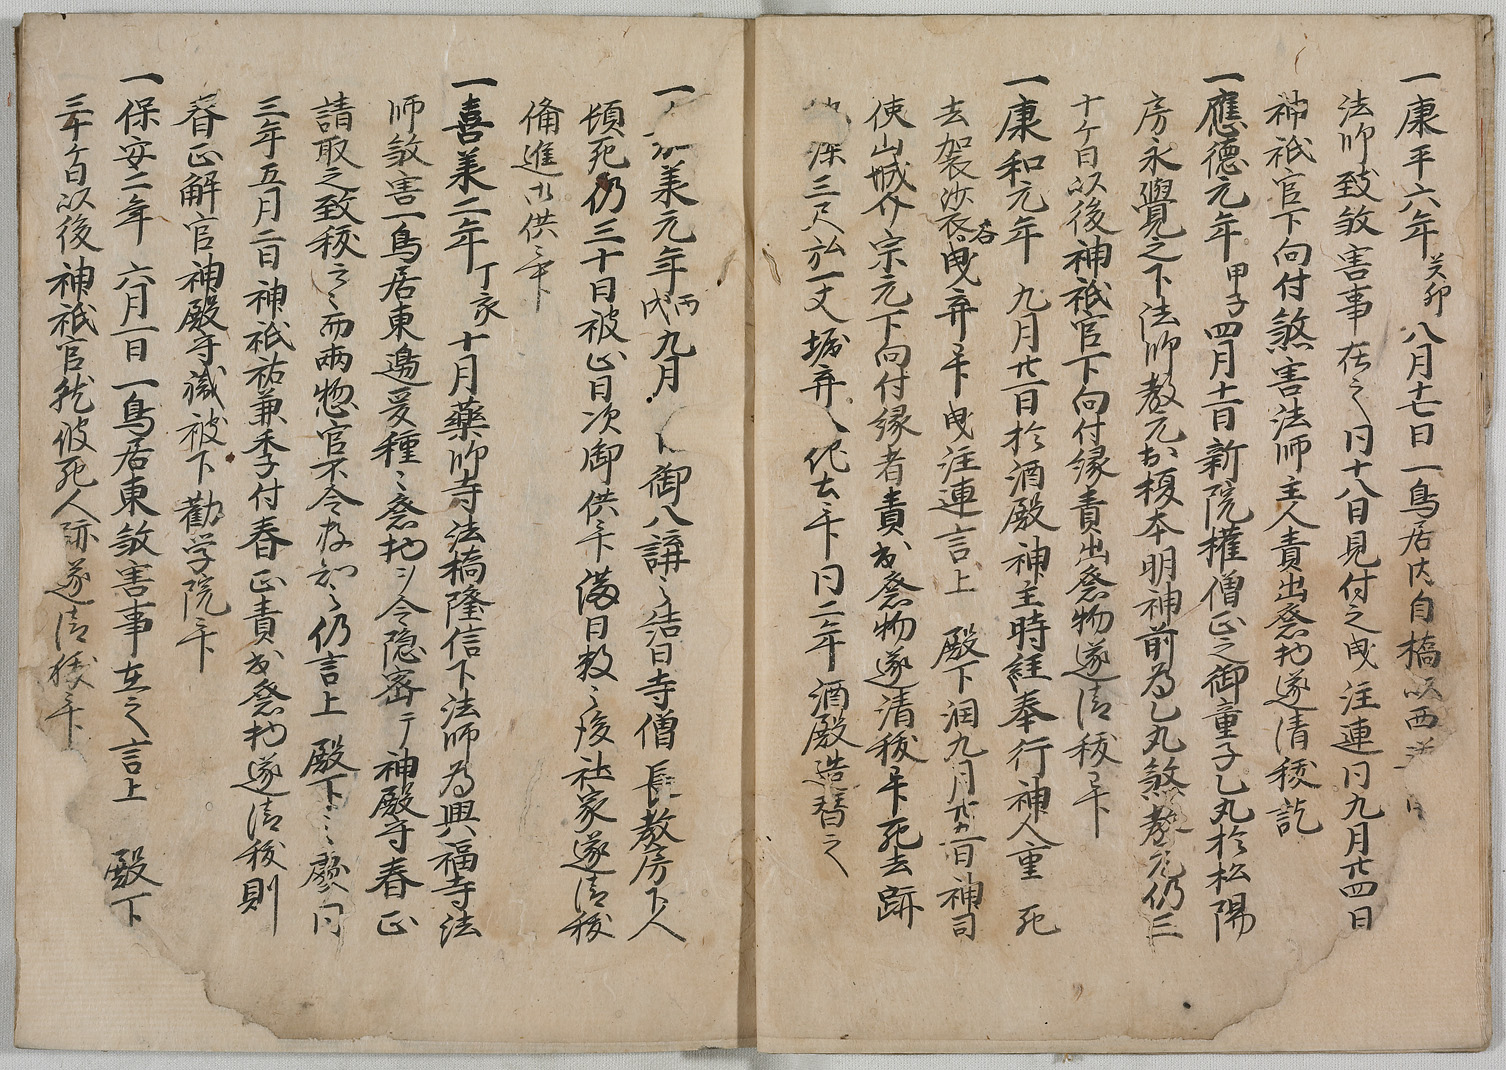 一康平六年癸卯八月十七日一鳥居内自橋以西
法師致敓害事在之同十八日見付之曳注連同九月廿四日
神祇官下向付煞害法師主人責出祭物遂清秡訖
一應徳元年甲子四月十一日新院權僧正之御童子乙丸於松陽
房永覺之下法師教元於榎本明神前為乙丸煞教元仍三
十ケ日以後神祇官下向付縁責出祭物遂清秡畢
一康和元年九月廿一日於酒殿神主時経奉行神人重死
去袈裟衣等曳弃畢曳注連言上 殿下潤九月廿五日神司
使山城介宗元下向付縁者責出祭物遂清秡畢死去跡
深三尺弘一丈堀弃他土畢同二年酒殿造替之
一嘉羨元年丙戌九月 御八講之結日寺僧長教房下人
頓死仍三十日被止日次御供畢満日数之後社家遂清秡
備進御供畢
一嘉羨二年丁亥十月藥師寺法橋隆信下法師為興福寺法
師敓害一鳥居東邊爰種々祭物ヲ令隠密テ神殿守春正
請取之致秡云々而両惣官不令存知之仍言上 殿下之處同
三年五月二日神祇祐兼季付春正責出祭物遂清秡則
春正解官神殿守職被下勸学院畢
一保安二年 六月一日一鳥居東敓害事在之言上 殿下
三十ケ日以後神祇官就彼死人跡遂清秡畢